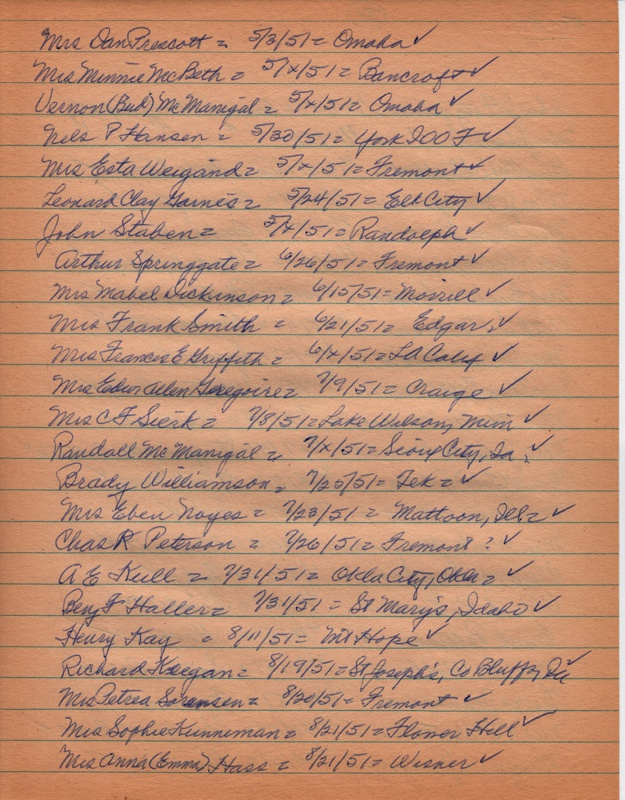 Mrs Dan Prescott = 5/3/51 = Omaha ✓
Mrs Minnie McBeth = 5/x/51 = Bancroft ✓
Vernon (Bud) McManigal = 5/x/51 = Omaha ✓
Nels P Hansen = 5/30/51 = York IOOF ✓
Mrs Esta Weigand = 5/x/51 = Fremont ✓
Leonard Clay Gaines = 5/24/51 = Elk City ✓
John Staben = 5/x/51 = Randolph ✓
Arthur Springgate = 6/26/51 = Fremont ✓
Mrs Mabel Dickinson = 6/15/51 = Morrill ✓
Mrs Frank Smith = 6/21/51 = Edgar, ✓
Mrs Frances E Griffith = 6/x/51 = LA Calif ✓
Mrs Allen Gregoire = 7/9/51 = Craige ✓
Mrs C F Sierk = 7/8/51 = Lake Wilson, Minn ✓
Randall McManigal = 7/x/51 = Sioux City, Ia. ✓
Brady Williamson = 7/25/51 = Tek = ✓
Mrs Eben Noyes = 7/23/51 = Mattoon, Ill = ✓
Chas R Peterson = 7/26/51 = Fremont ? ✓
A E Kull = 7/31/51 = Okla City, Okla = ✓
Benj F Haller = 7/31/51 = St Mary's, Idaho ✓
Henry Kay = 8/11/51 = Mt Hope ✓
Richard Keegan = 8/19/51 = St Joseph's, Co Bluffs, Ia ✓
Mrs Petrea Sorensen = 8/20/51 = Fremont ✓
Mrs Sophie Kunneman = 8/21/51 = Flower Hill ✓
Mrs Anna (Emma) Hass = 8/21/51 = Wisner ✓